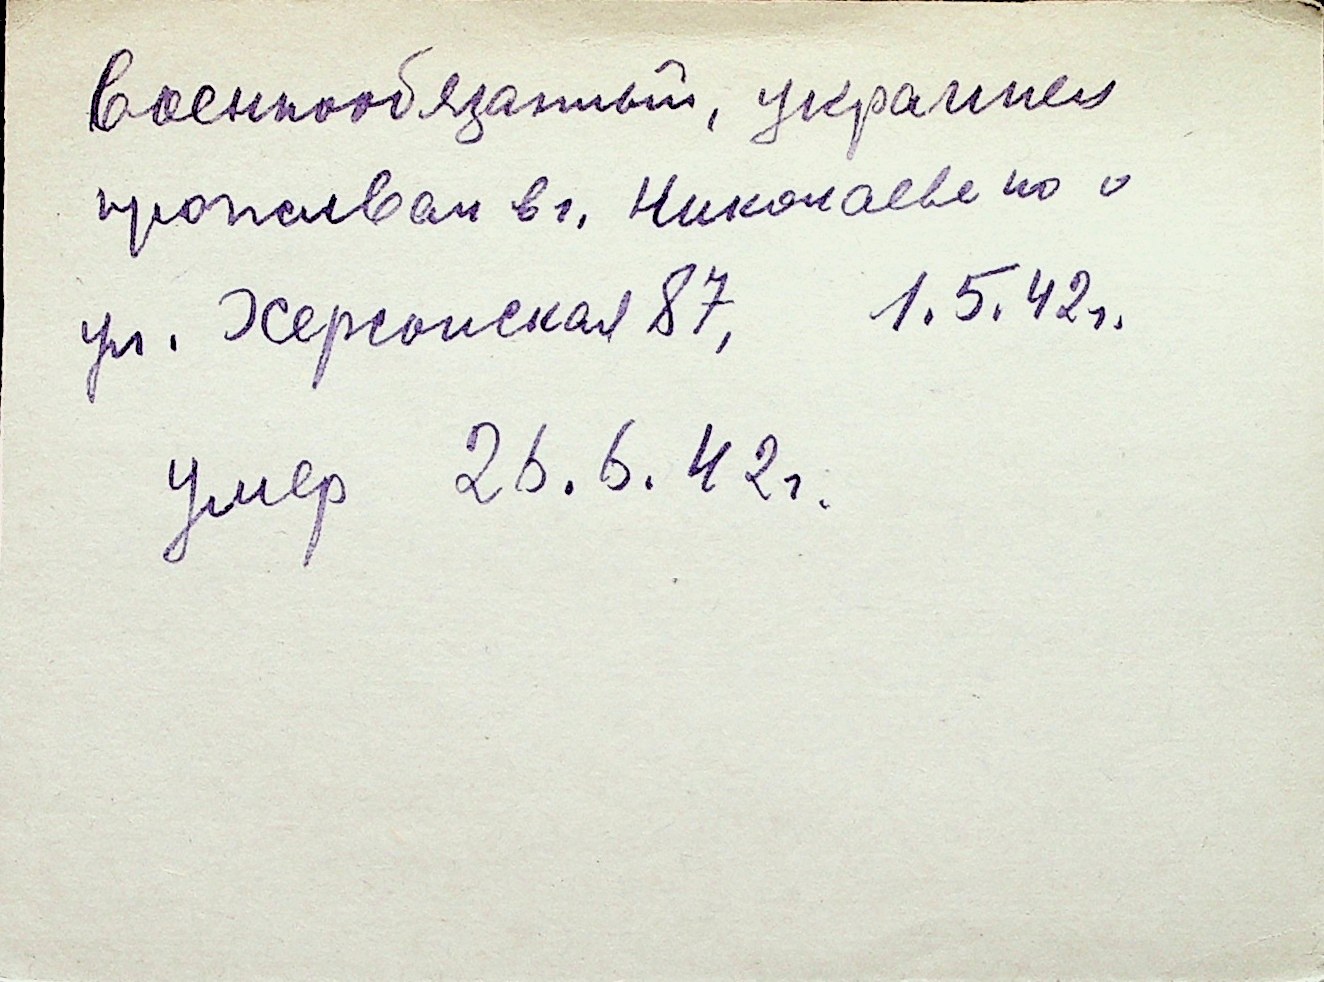 Военнообязанный, украинец
проживал в г. Николаеве по
ул. Херсонская 87, 1.5.42г.
умер 26.6.42г.